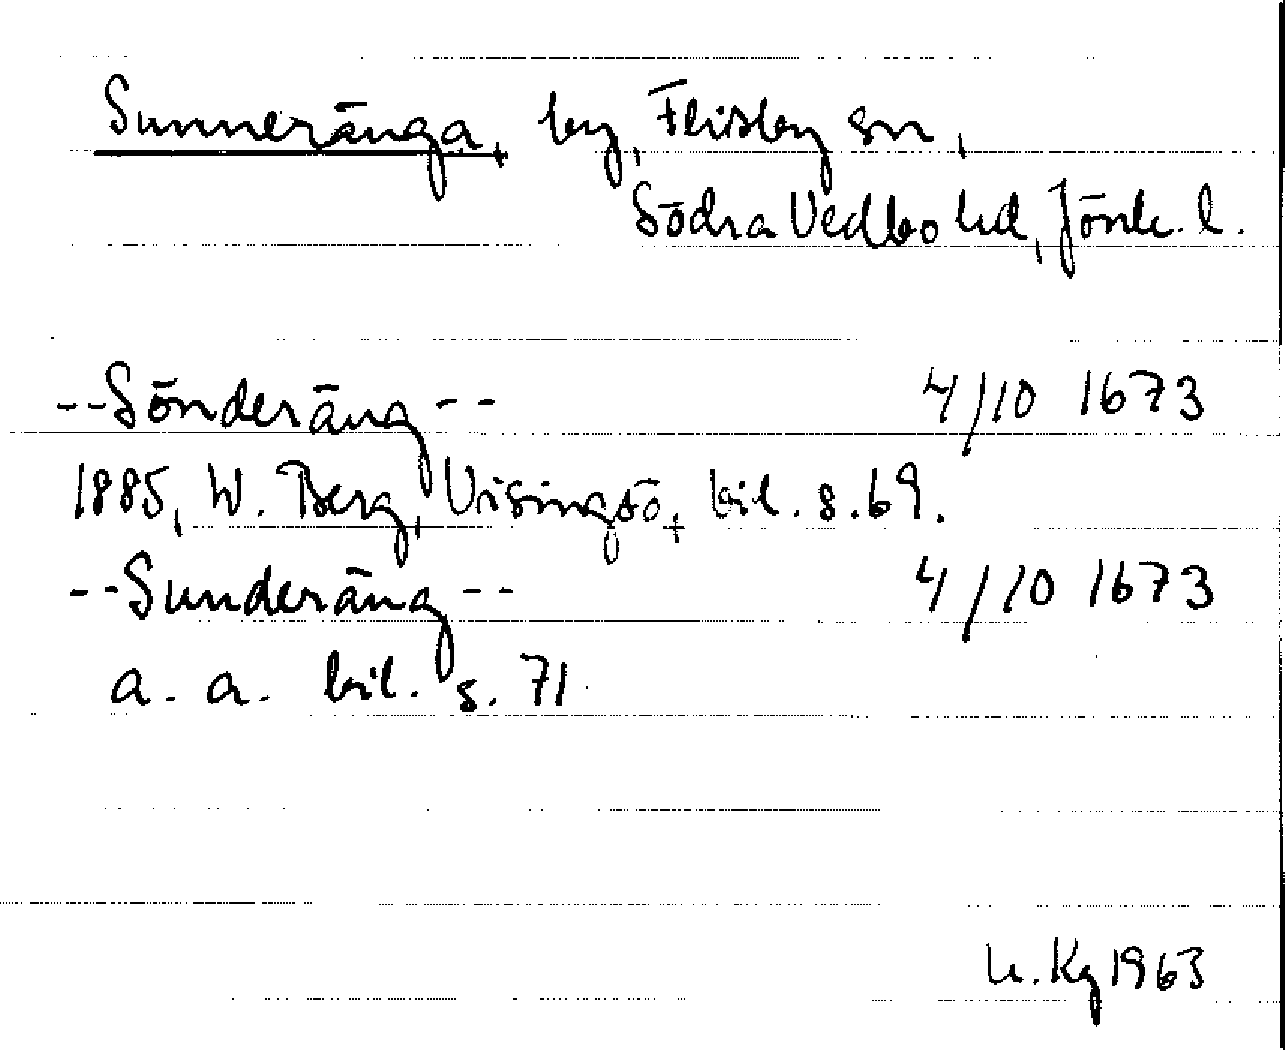 Sunneränga, by, Flisby sn,
Södra Vedbo hd, Jönk. l.
--Sönderäng-- 4/10 1673
1885, W. Berg, Visingsö, bil. s. 69.
--Sunderäng-- 4/10 1673
a. a. bil. s. 71
Kg 1963